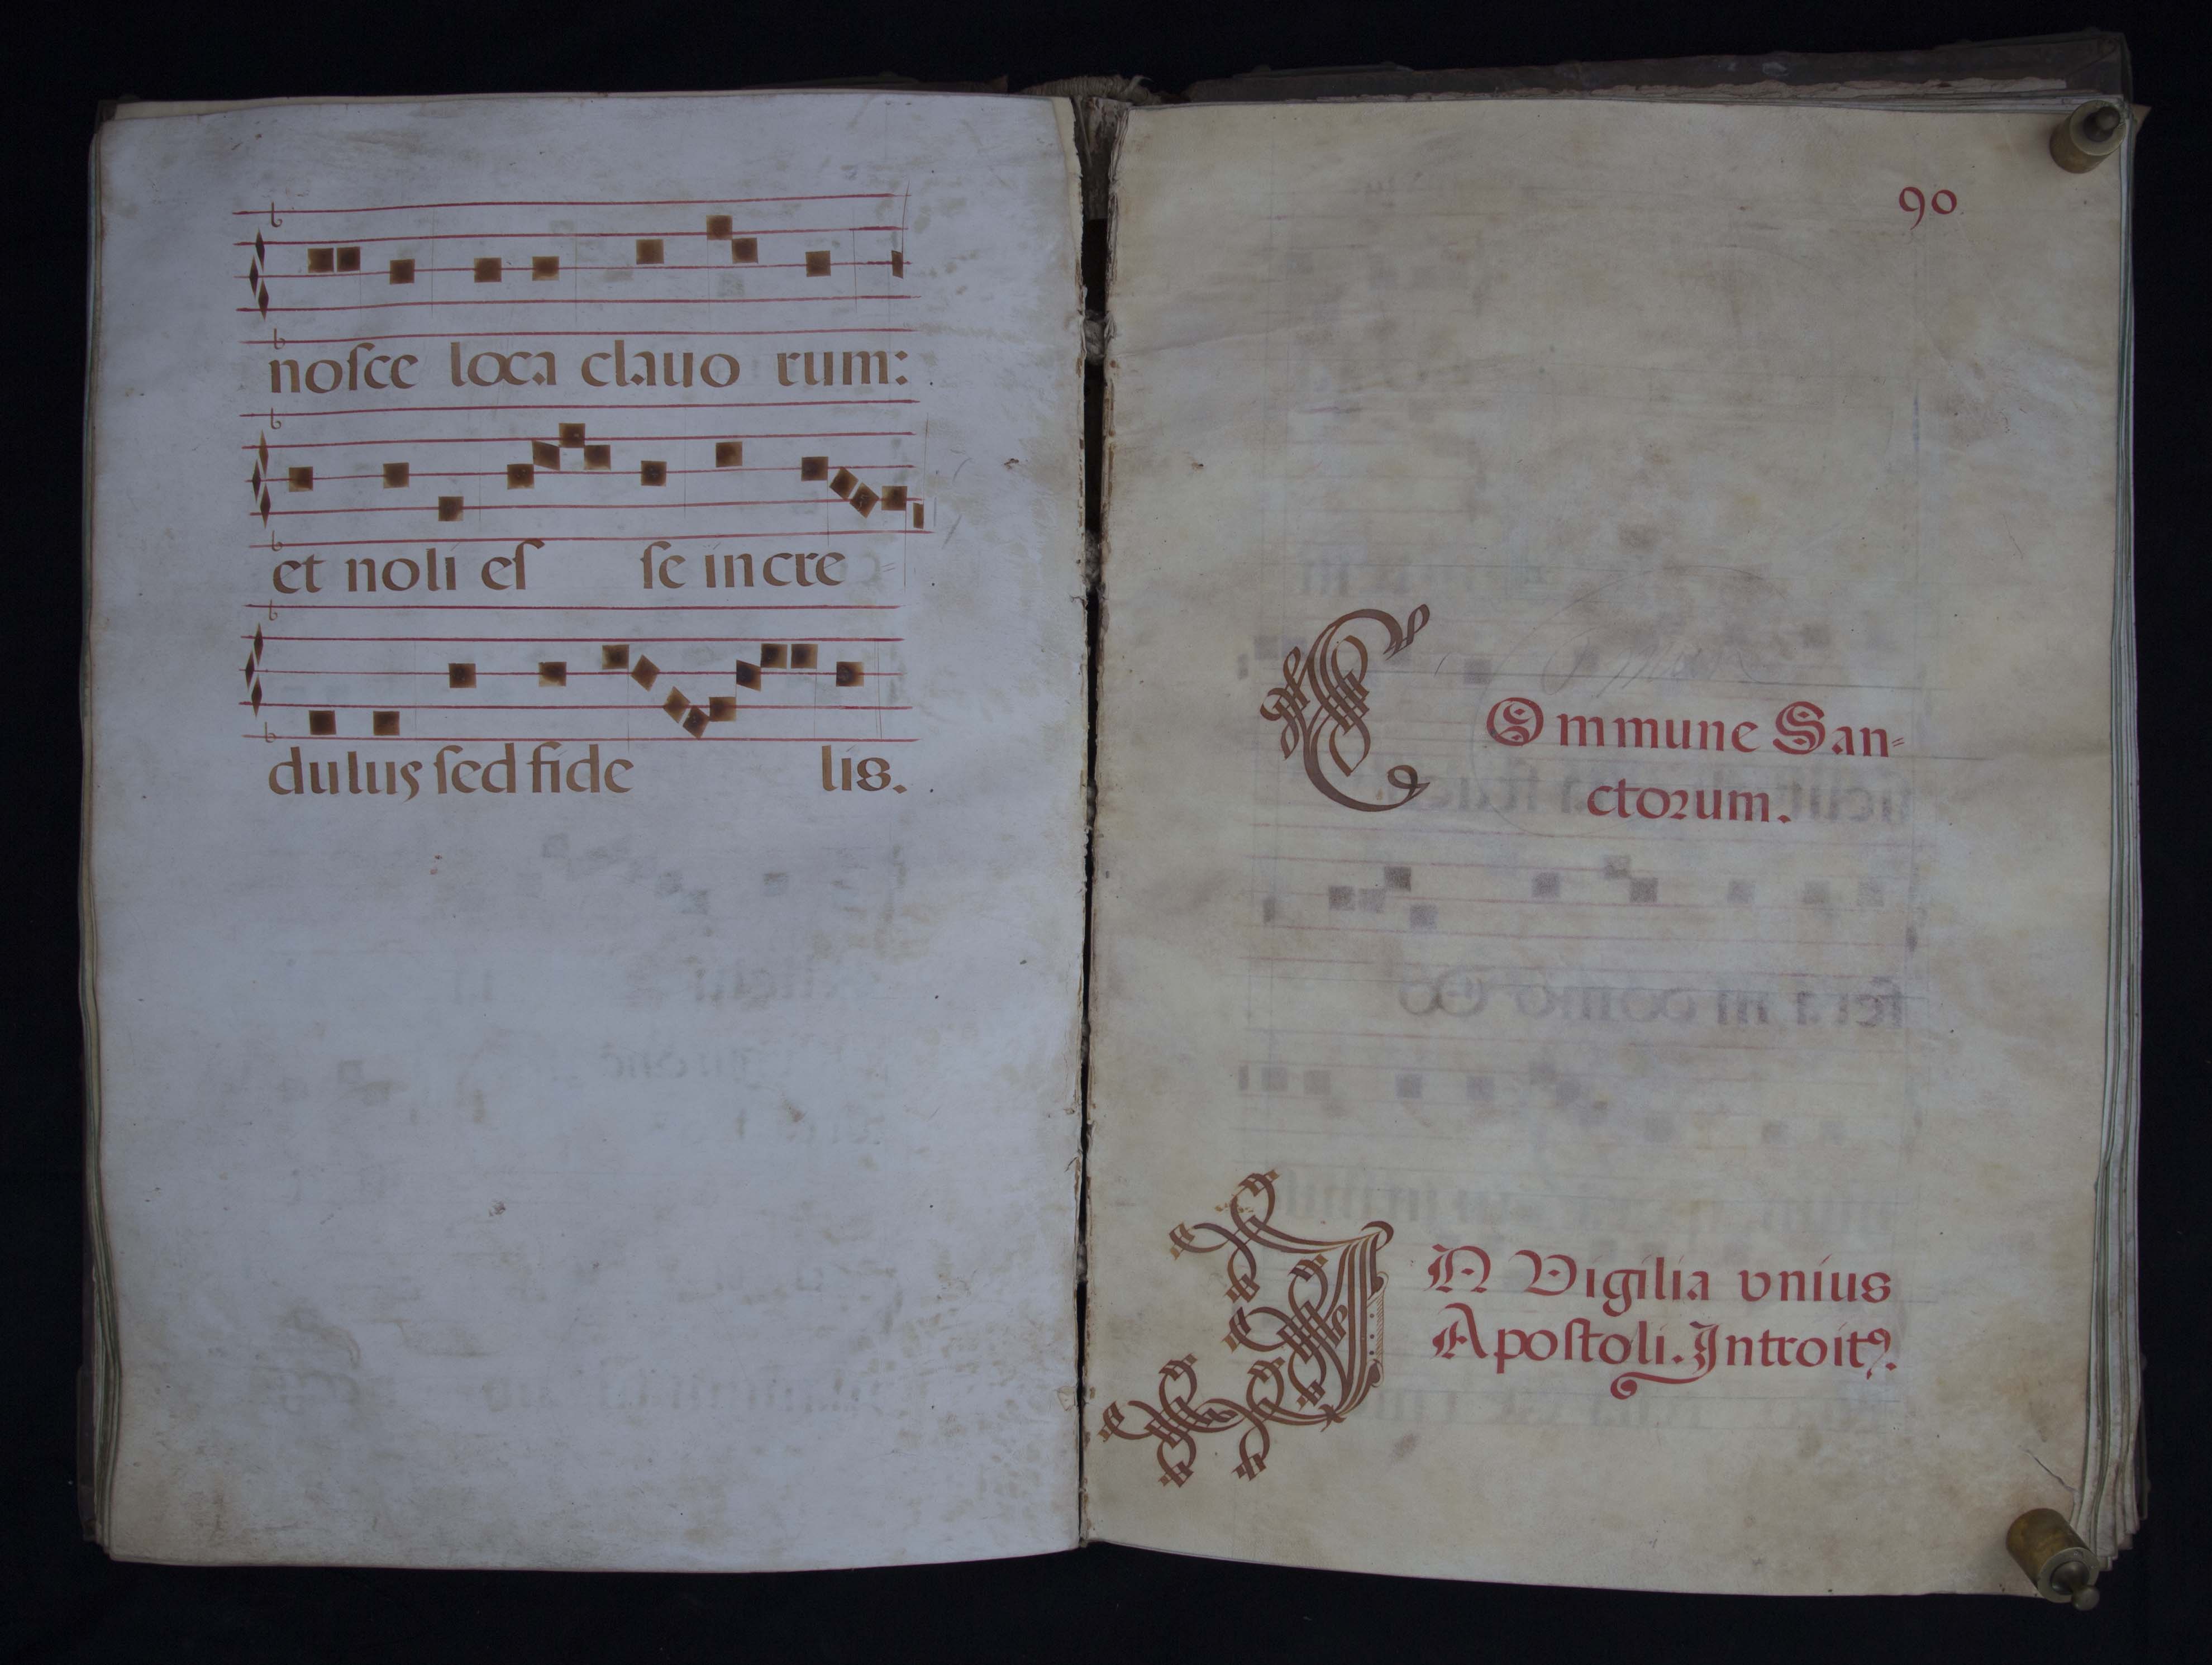 noſce loca clauo rum:
et noli eſ ſe incre
dulus ſed fide lis.
90
COmmune San-
ctoꝛum.
IN Vigilia vnius
Apoſtoli. Introitꝰ.